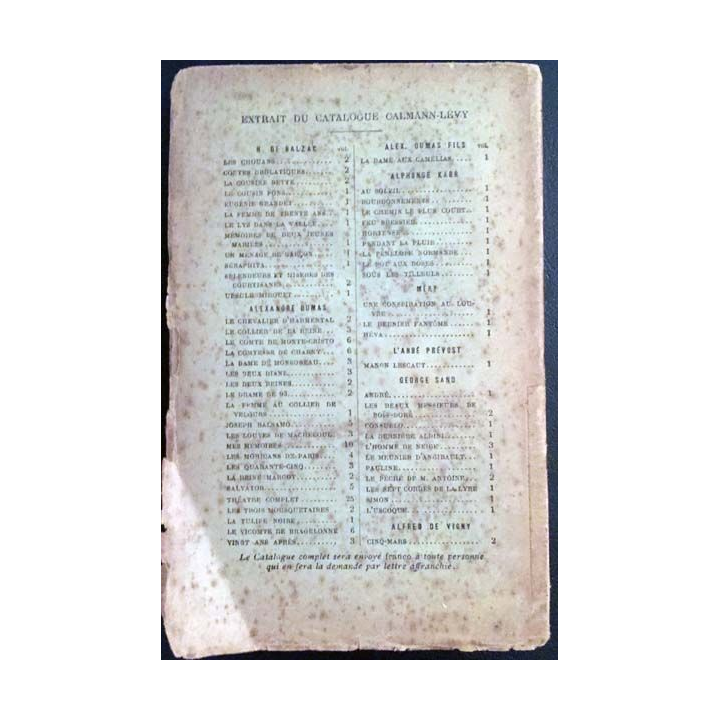 EXTRAIT DU CATALOGUE CALMANN-LÉVY
H. DE BALZAC vol.
LES CHOUANS 2
CONTES DROLATIQUES
LA COUSINE BETTE
LE COUSIN PONS 1
EUGÉNIE GRANDET 1
LA FEMME DE TRENTE ANS 1
LE LYS DANS LA VALLÉE 1
MÉMOIRES DE DEUX JEUNES
MARIÉES 1
UN MÉNAGE DE GARÇON 1
SÉRAPHITA 1
SPLENDEURS ET MISÈRES DES
COURTISANES 2
URSULE MIROUET 1
ALEXANDRE DUMAS
LE CHEVALIER D'HARMENTAL 2
LE COLLIER DE LA REINE
LE COMTE DE MONTE-CRISTO 6
LA COMTESSE DE CHARNY 6
LA DAME DE MONSOREAU 3
LES DEUX DIANE 3
LES DEUX REINES 2
LE DRAME DE 93 2
LA FEMME AU COLLIER DE
VELOURS 1
JOSEPH BALSAMO 5
LES LOUVES DE MACHECOUL 3
MES MÉMOIRES 10
LES MOHICANS DE PARIS 4
LES QUARANTE-CINQ 3
LA REINE MARGOT 2
SALVATOR 5
THÉATRE COMPLET 25
LES TROIS MOUSQUETAIRES 2
LA TULIPE NOIRE 1
LE VICOMTE DE BRAGELONNE 6
VINGT ANS APRÈS 3
ALEX. DUMAS FILS vol.
LA DAME AUX CAMÉLIAS 1
ALPHONSE KARR
AU SOLEIL 1
BOURDONNEMENTS 1
LE CHEMIN LE PLUS COURT 1
FEU BRESSIER 1
HORTENSE 1
PENDANT LA PLUIE 1
LA PÉNÉLOPE NORMANDE 1
LE POT AUX ROSES 1
SOUS LES TILLEULS 1
MÉRY
UNE CONSPIRATION AU LOU-
VRE 1
LE DERNIER FANTÔME 1
HÉVA 1
L'ABBÉ PRÉVOST
MANON LESCAUT 1
GEORGE SAND
ANDRÉ 1
LES BEAUX MESSIEURS DE
BOIS-DORÉ 2
CONSUELO
LA DERNIÈRE ALDINI 1
L'HOMME DE NEIGE 3
LE MEUNIER D'ANGIBAULT 1
PAULINE 1
LE PÉCHÉ DE M. ANTOINE 2
LES SEPT CORDES DE LA LYRE 1
SIMON 1
L'USCOQUE 1
ALFRED DE VIGNY
CINQ-MARS 2
Le Catalogue complet sera envoyé franco à toute personne
qui en fera la demande par lettre affranchie.